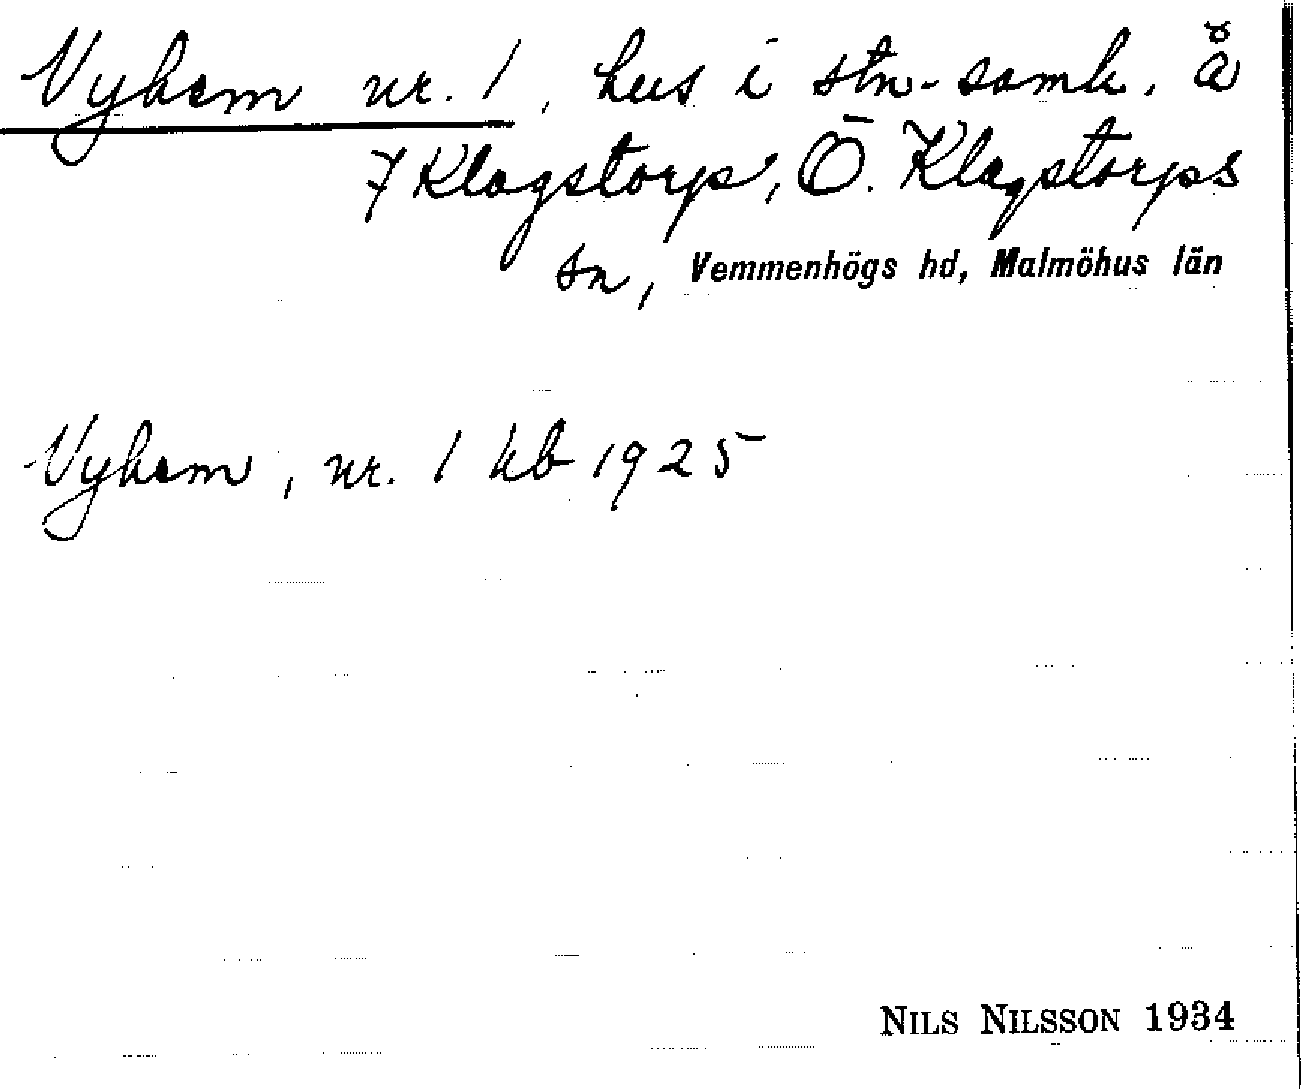 Vyhem nr. 1, hus i stn-samh. å
7 Klagstorp, Ö. Klagstorps
sn, Vemmenhögs hd, Malmöhus län
Vyhem, nr. 1 kb 1925
NILS NILSSON 1934